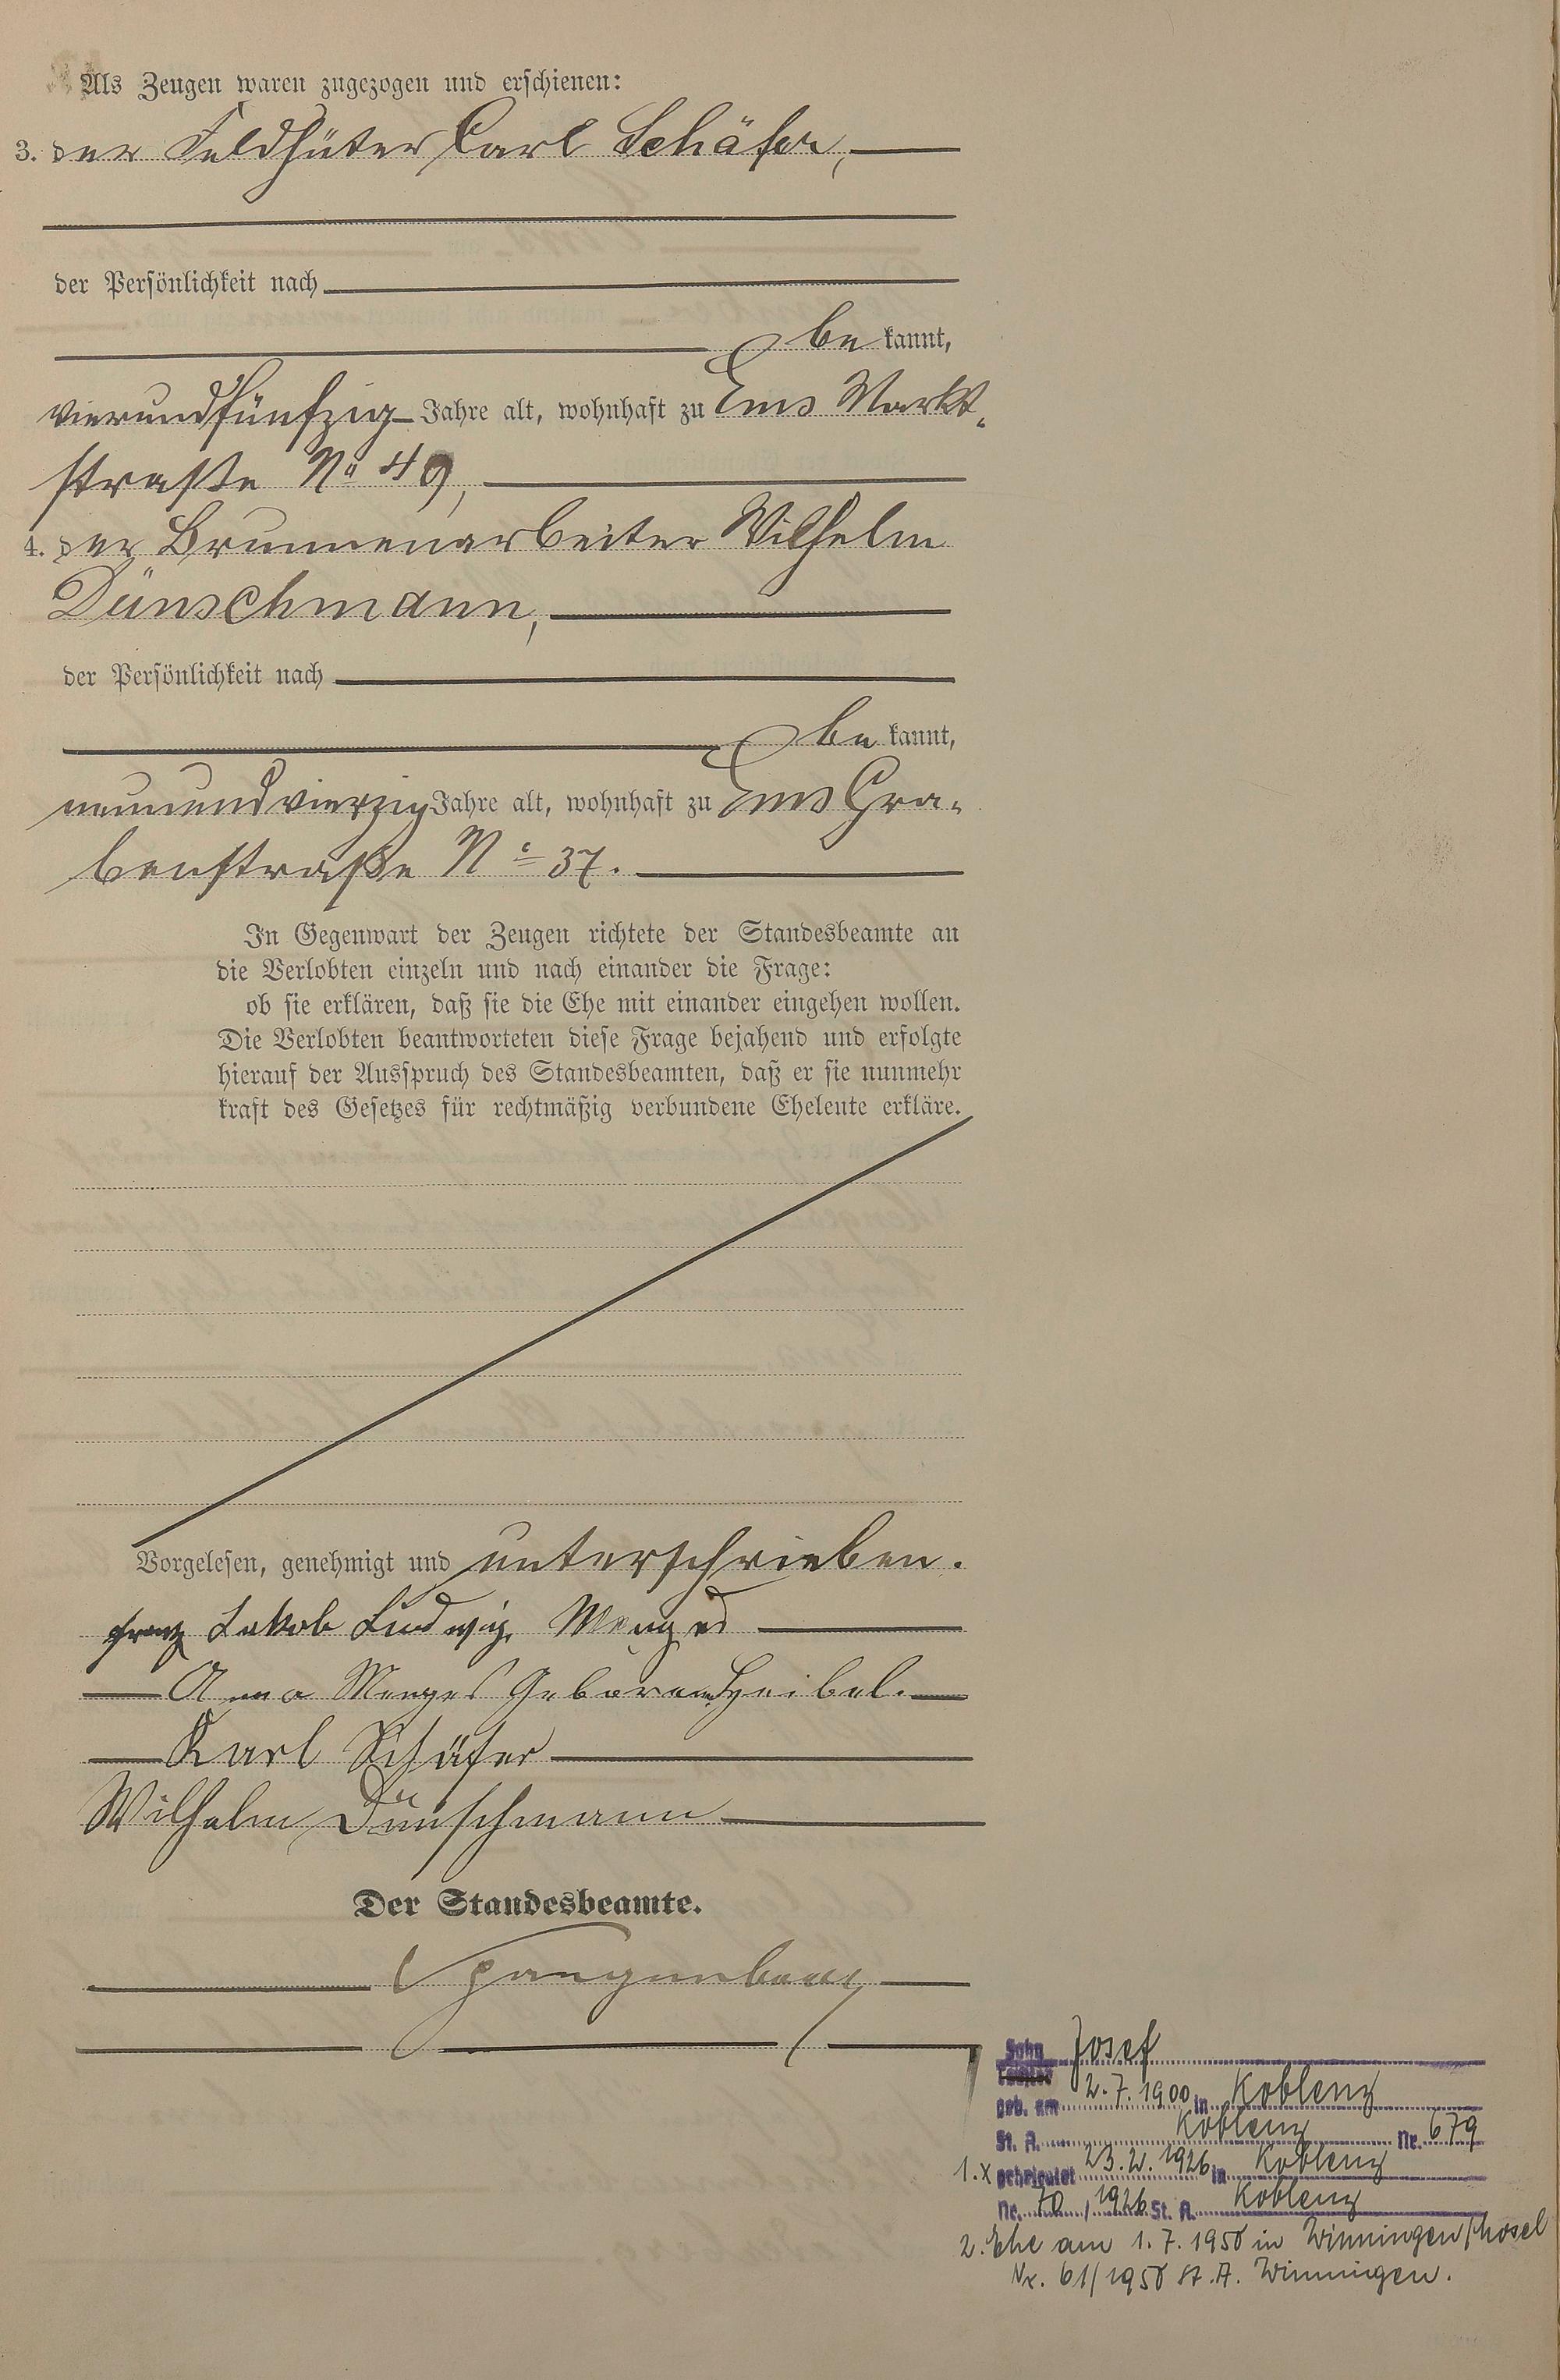 Als Zeugen waren zugezogen und erschienen:
3. der Feldhüter Carl Schäfer,
der Persönlichkeit nach
be kannt,
vierundfünfzig Jahre alt, wohnhaft zu Ems Markt-
straße No 49,
4. der Brunnenarbeiter Wilhelm
Dünschmann,
der Persönlichkeit nach
be kannt,
neunundvierzig Jahre alt, wohnhaft zu Ems Gra-
benstraße No 37.
In Gegenwart der Zeugen richtete der Standesbeamte an
die Verlobten einzeln und nach einander die Frage:
ob sie erklären, daß sie die Ehe mit einander eingehen wollen.
Die Verlobten beantworteten diese Frage bejahend und erfolgte
hierauf der Ausspruch des Standesbeamten, daß er sie nunmehr
kraft des Gesetzes für rechtmäßig verbundene Eheleute erkläre.
Vorgelesen, genehmigt und unterschrieben.
Franz Jakob Ludwig Menges
Anna Menges Geborene Heibel.
Karl Schäfer
Wilhelm Dünschmann
Der Standesbeamte.
Spangenberg
Sohn Josef
Tochter
geb. am 2.7.1900 in Koblenz
St. A. Koblenz Nr. 679
1. x geheiratet 23.2.1926 in Koblenz
Nr. 70 / 1926 St. A. Koblenz
2. Ehe am 1.7.1950 in Winningen/Mosel
Nr. 61/1950 St. A. Winningen.